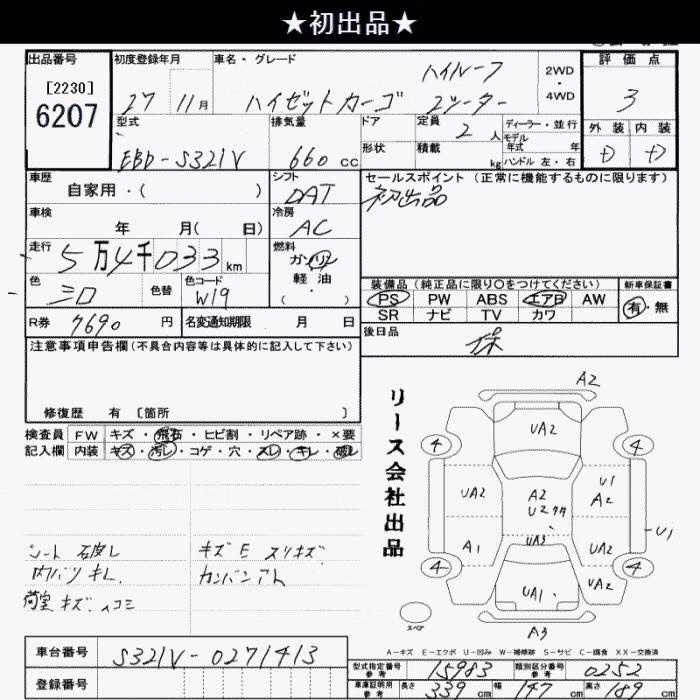 ★初出品★
出品番号 初度登録年月 車名・グレード 評価点
[2230]
6207
27 11月 ハイゼットカーゴ ハイルーフ 2シーター 2WD・4WD 3
型式 排気量 ドア 定員 2人 ディーラー・並行 外装 内装
形状 積載 kg モデル年式 年 ハンドル 左・右 D D
EBD-S321V 660cc
車歴 シフト セールスポイント (正常に機能するものに限ります)
自家用・( ) DAT 初出品
車検 冷房
年 月( 日) AC
走行 燃料
5万4千033km ガソリン・軽油
色 色替 色コード 装備品 (純正品に限り○をつけてください) 新車保証書
シロ W19 PS PW ABS エアB AW 有・無
SR ナビ TV カワ
R券 7690円 名変通知期限 月 日 後日品
注意事項申告欄(不具合内容等は具体的に記入して下さい) 保
修復歴 有 [箇所 ]
検査員 FW キズ・飛石・ヒビ割・リペア跡・×要
記入欄 内装 キズ・汚レ・コゲ・穴・スレ・キレ・破レ
リース会社出品
A2
UA2
4 4
UA2 A2 U1
A2
UA3
A1 UA2 U1
4 4
UA1 UA2
スペア
A3
シート 破レ キズ E スリキズ
内バリ キレ カンバンアト
荷室 キズ.ヘコミ
A-キズ E-エクボ U-凹み W-補修跡 S-サビ C-腐食 XX-交換済
車台番号 S321V-0271413
型式指定番号 参考 15983 類別区分番号 参考 0252
登録番号
車庫証明用 参考 長さ 339cm 幅 147cm 高さ 189cm